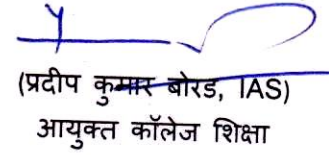 (प्रदीप कुमार बोरड, IAS)
आयुक्त कॉलेज शिक्षा